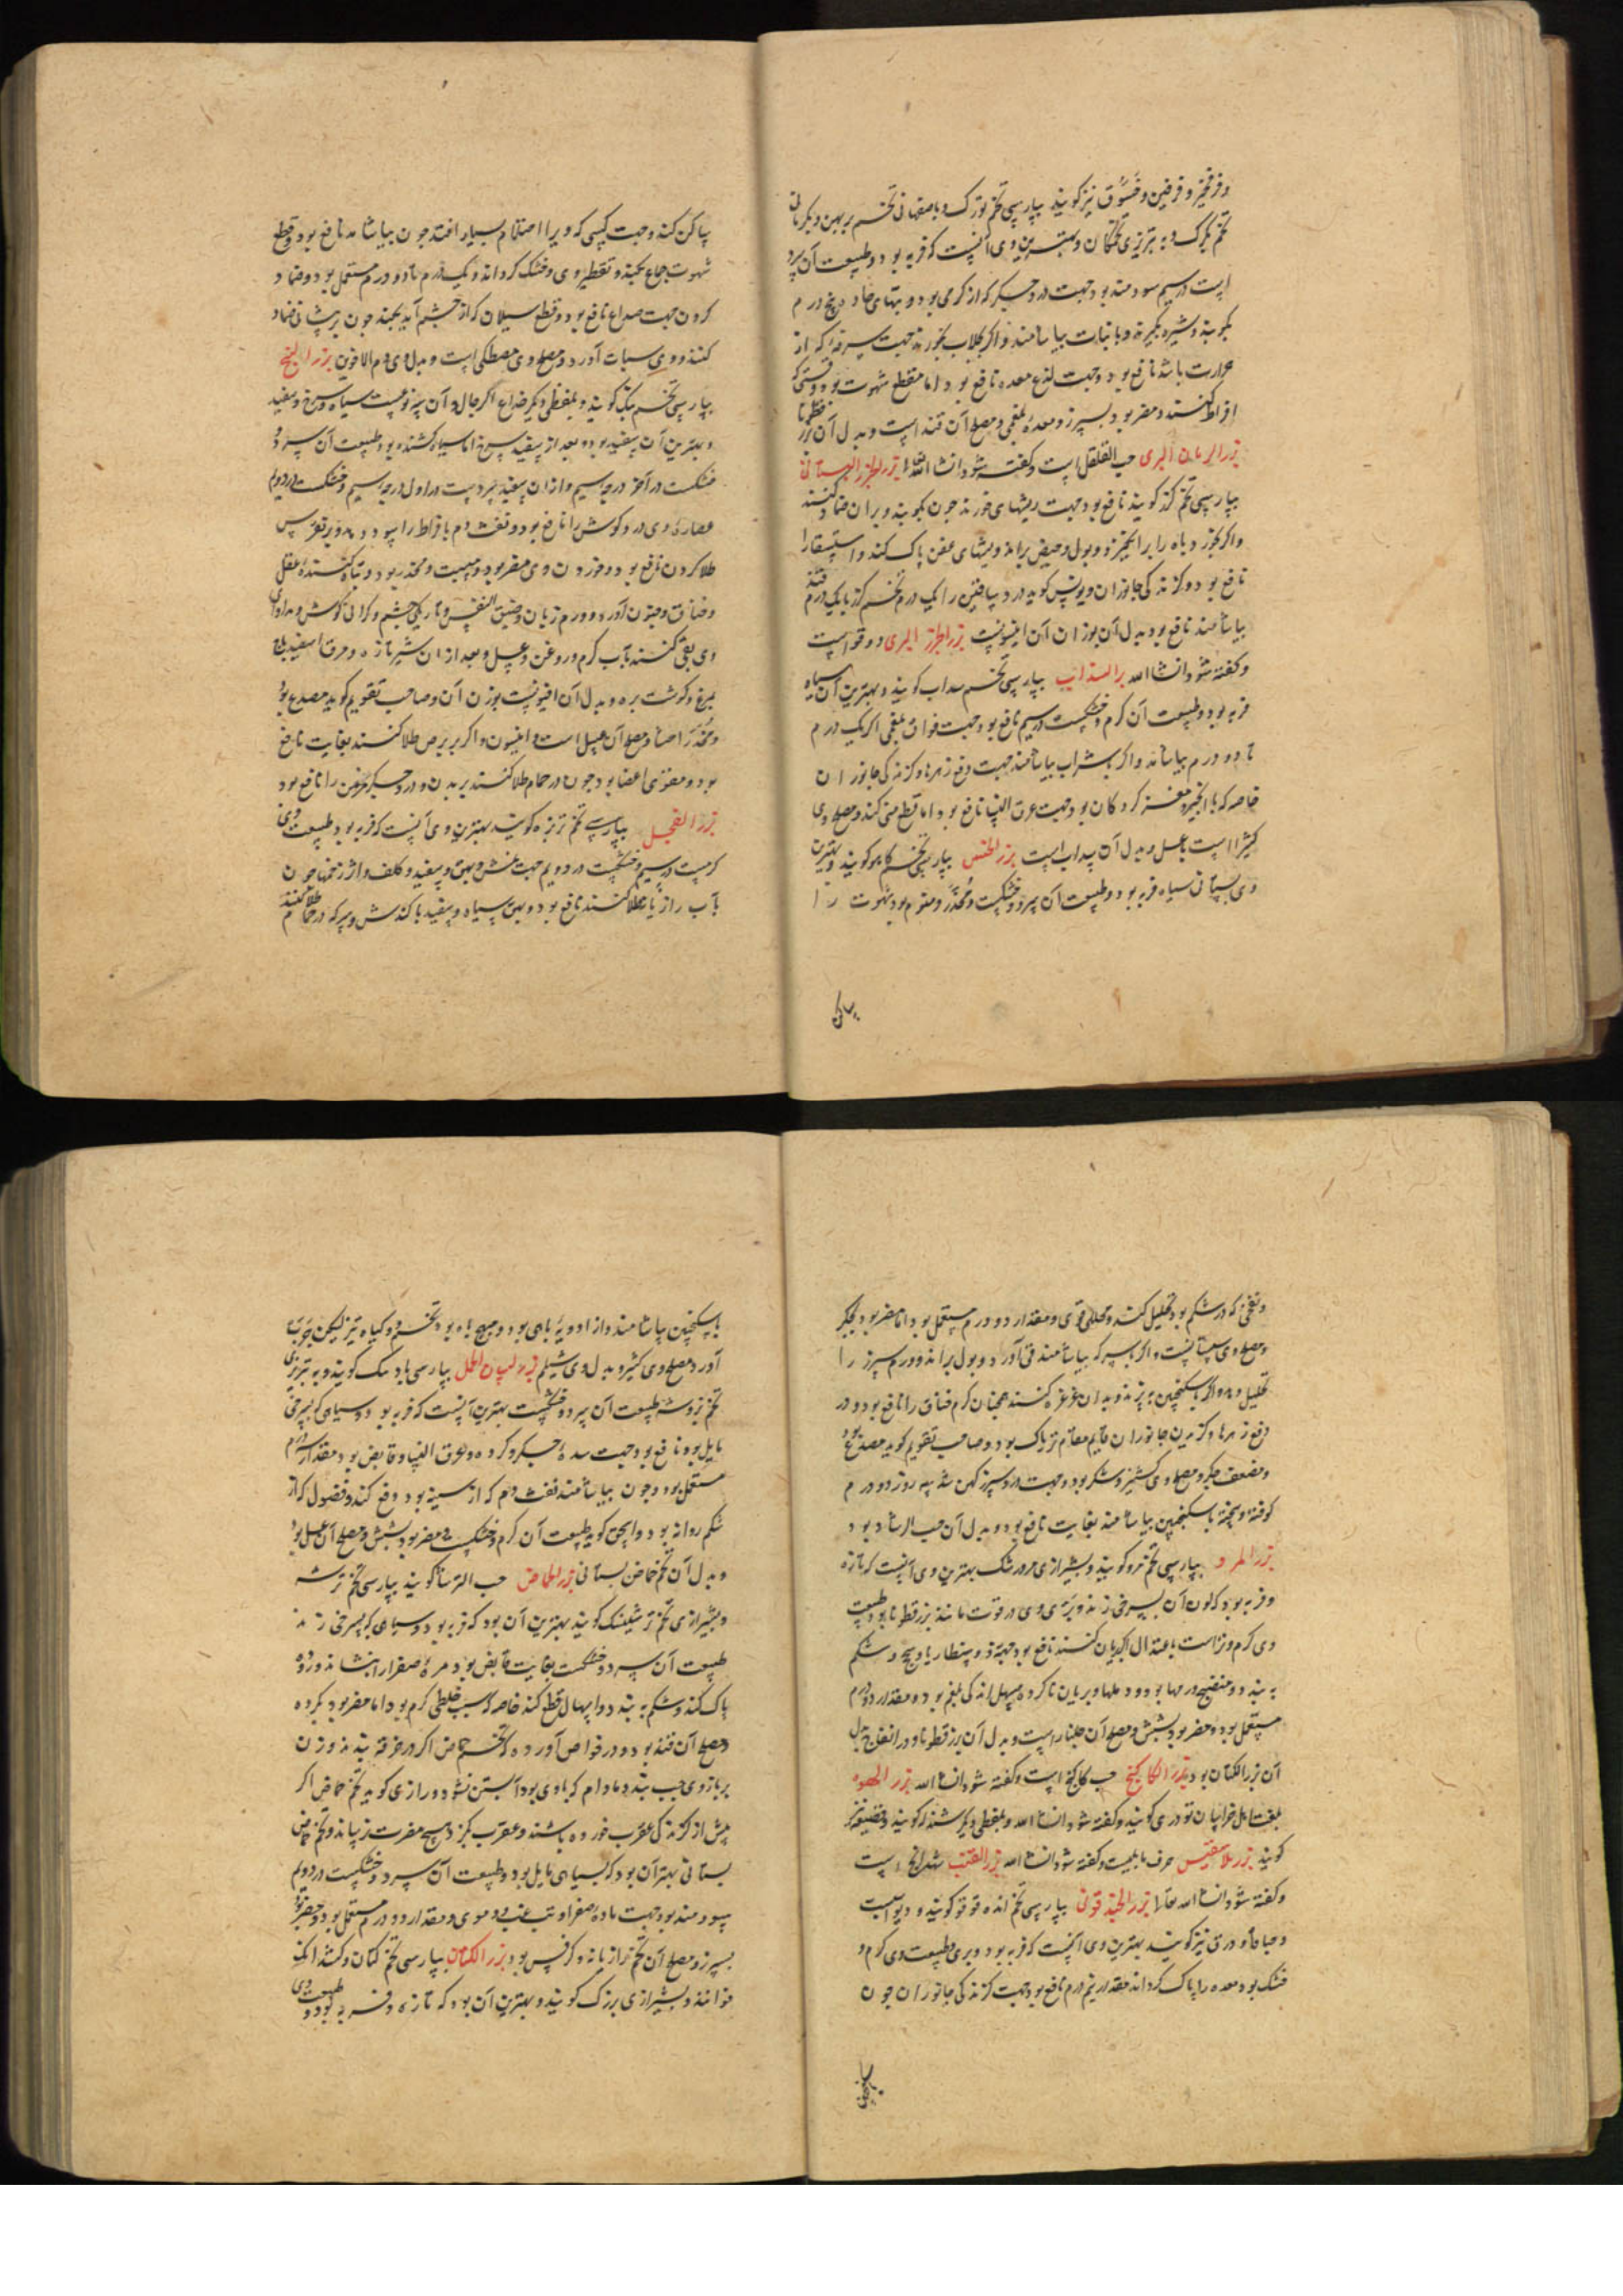 و فرفخیر و فرفین و فسوق نیز کویند بپارسی تخم تورک و باصفهانی تخم پربهن و بکرمانی
تخم بکرک و به تبریزی تخمکان و بهترین وی آنست که فربه بود و طبیعت آن سرد
است در سیم سودمند بود جهت درد جکر که از کرمی بود و تبهای حاد و پنج درم
بکوبند و شیره بکیرند و با نبات بیاشامند و اگر بجلاب بخورند جهت سرفه که از
حرارت باشد نافع بود و جهت لذع معده نافع بود اما منقطع شهوت بود و قتی که
افراط کنند و مضر بود بسپرز و معده بلغمی و مصلح آن قند است و بدل آن بزر قطونا
بزر الرمان البری حب القلقل است و کفته شود انشا الله بزر الجزر البستانی
بپارسی تخم کزر کویند نافع بود جهت ریشهای خورنده چون بکوبند و بر آن ضماد کنند
و اکر بخورند باه را برانکیزد و بول و حیض براند و ریشهای عفن پاک کند و استسقا را
نافع بود و کزندکی جانوران و دیوسقوریدوس کوید در یافتن را یک درم تخم کزر با یک درم قند
بیاشامند نافع بود بدل آن بوزن آن انیسونست بزر الجزر البری دوقو است
و کفته شود انشا الله بزر السذاب بپارسی تخم سداب کویند و بهترین آن سیاه
فربه بود و طبیعت آن کرم و خشکست در سیم نافع بود جهت فواق بلغمی اکر یک درم
تا دو درم بیاشامند و اکر بشراب بیاشامند جهت دفع زهرها و کزندکی جانوران
خاصه که با انجیر و مغز کردکان بود جهت عرق النسا نافع بود اما قطع منی کند و مصلح وی
کثیرا است با عسل و بدل آن سداب است بزر الخس بپارسی تخم کاهو کویند و بهترین
وی بستانی سیاه فربه بود و طبیعت آن سرد و خشکست و مخدر و منوم بود شهوت را
ساکن
ساکن کند و جهت کسی که ویرا احتلام بسیار افتد چون بیاشامد نافع بود و قطع
شهوت جماع بکند و تقطیر وی و خشک کرداند و یک درم تا دو درم مستعمل بود و ضماد
کردن جهت صداع نافع بود و قطع سیلان که از چشم آید بکند چون بر پیشانی ضماد
کنند و وی سبات آورد و مصلح وی مصطکی است و بدل وی دم الاخوین بزر البنج
بپارسی تخم بنک کویند و بلفظی دیکر خداع الرجال و آن سه نوعست سیاه و سرخ و سفید
و بهترین آن سفید بود و بعد از سفید سرخ اما سیاه کشنده بود و طبیعت آن سرد و
خشکست در آخر درجه سیم و ازان سفید سردست در اول درجه سیم و خشکست در دوم
عصاره وی درد کوش را نافع بود و نفث دم بافراط را سود دهد و بر نقرس
طلا کردن نافع بود و خوردن وی مضر بود و مسبت و مخدر بود و تباه کننده عقل
و خناق و جنون آورد و ورم زبان و ضیق النفس و تاریکی چشم و کرانی کوش و مداوای
وی بقی کنند بآب کرم و روغن و عسل و بعد ازان شیر تازه و مرق اسفیدباج
مرغ و کوشت بره و بدل آن افیونست بوزن آن و صاحب تقویم کوید مصدع بود
و مخدر اعضا و مصلح آن عسل است و انیسون و اکر بر برص طلا کنند بغایت نافع
بود و مقوی اعضا بود چون در حمام طلا کنند بر بدن و درد جکر مزمن را نافع بود
بزر الفجل بپارسی تخم تربزه کویند بهترین وی آنست که فربه بود طبیعت وی
کرمست در سیم و خشکست در دویم جهت نمش و بهق و سپید و کلف و اثر زخمها چون
بآب رازیانه طلا کنند نافع بود و بهق سیاه و سفید با کندش و سرکه در حمام طلا کنند
و نفخی که در شکم بود تحلیل کند و محللی قوی و مقدار دو درم مستعمل بود اما مضر بود بجکر
و مصلح وی سپستانست و اکر بسرکه بیاشامند قی آورد و بول براند و ورم سپرز را
تحلیل دهد و اکر با سکنجبین بپزند و بدان غرغره کنند همچنان کرم خناق را نافع بود و در
دفع زهرها و کزیدن جانوران قایم مقام تریاک بود و صاحب تقویم کوید مصدع بود
و مضعف جکر و مصلح وی کشنیز و شکر بود و جهت درد سپرز کهن شده سه روز دو درم
کوفته و بیخته با سکنجبین بیاشامند بغایت نافع بود و بدل آن حب الرشاد بود
بزر المرو بپارسی تخم مرو کویند و بشیرازی مرورشک بهترین وی آنست که تازه
و فربه بود که لون آن بسرخی زند و بری وی در قوت مانند بزر قطونا بود طبیعت
وی کرم و تر است باعتدال اکر بریان کنند نافع بود جهة ذوسنطاریا و سحج و شکم
به بندد و منضج ورمها بود و دملها و بریان ناکرده مسهل اندکی بلغم بود و مقدار دو درم
مستعمل بود و مضر بود بشش و مصلح آن جلنار است و بدل آن بزر قطونا و در انضاج بدل
آن بزر الکتان بود بزر الکاکنج حب کاکنج است و کفته شود انشا الله بزر الهوه
بلغت اهل خراسان تودری کویند و کفته شود انشا الله و بلفظی دیکر شندله کویند و قصیصه نیز
کویند بزر بلاسفیس حرف بابلیست و کفته شود انشا الله بزر القنب شهدانج است
و کفته شود انشا الله تعالی بزر الحندقوقی بپارسی تخم انده قوقو کویند و دیواسبست
و حباقا و ذرق نیز کویند بهترین وی آنست که فربه بود و بری و طبیعت وی کرم و
خشک بود معده را پاک کرداند مقدار نیم درم نافع بود جهت کزندکی جانوران چون
با سکنجبین
با سکنجبین بیاشامند و از ادویه باهی بود و مهیج باه بود تخم و کیاه نیز لیکن جرب
آورد و مصلح وی کثیرا و بدل وی شیلم بزر لسان الحمل بپارسی بارتنک کویند و به تبریزی
تخم بزوشه طبیعت آن سرد و خشکست بهترین آنست که فربه بود و سیاهی که بسرخی
مایل بود نافع بود جهت سده جکر و کرده و عرق النسا و قابض بود مقدار سه درم
مستعمل بود و چون بیاشامند نفث دم که از سینه بود دفع کند و فضول که از
شکم روانه بود و اسحق کوید طبیعت آن کرم و خشکست و مضر بود بشش و مصلح آن عسل بود
و بدل آن تخم حماض بستانی بزر الحماض حب الترشا کویند بپارسی تخم ترشه
و بشیرازی تخم ترشینک کویند بهترین آن بود که فربه بود و سیاهی که بسرخی زند
طبیعت آن سرد و خشکست بغایت قابض بود مره صفرا را بنشاند و روده
پاک کند و شکم به بندد و اسهال قطع کند خاصه که بسبب خلطی کرم بود اما مضر بود بکرده
و مصلح آن قند بود و در خواص آورده که تخم حماض اکر در خرقه بندند و زن
بر بازوی چپ بندد مادام که با وی بود آبستن نشود و رازی کوید تخم حماض اکر
پیش از کزندکی عقرب خورده باشند و عقرب بکزد هیچ مضرت نرساند و تخم حماض
بستانی بهتر آن بود که بسیاهی مایل بود و طبیعت آن سرد و خشکست در دوم
سودمند بود جهت ماده صفرا و تب غب و دموی و مقدار دو درم مستعمل بود و مضر بود
بسپرز و مصلح آن تخم رازیانه و کرفس بود بزر الکتان بپارسی تخم کتان و کشدانک
خوانند و بشیرازی بزرک کویند و بهترین آن بود که تازه و فربه بود و طبیعت وی